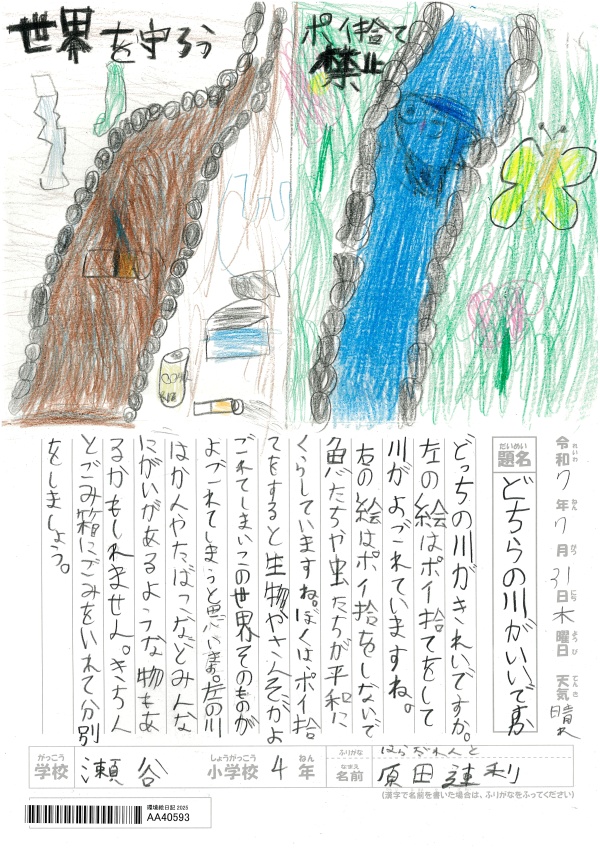 世界を守ろう
ポイ捨て
禁止
令和7年7月31日木曜日 天気 晴れ
れいわ ねん がつ にち ようび てんき
だいめい
題名
どちらの川がいいですか
どっちの川がきれいですか。
左の絵はポイ捨てをして
川がよごれていますね。
右の絵はポイ捨をしないで
魚たちや虫たちが平和に
くらしていますね。ぼくはポイ捨
てをすると生物やさんそがよ
ごれてしまいこの世界そのものが
よごれてしまうと思います。左の川
はかんやたばこなどみんな
にがいがあるような物もあ
るかもしれません。きちん
とごみ箱にごみをいれて分別
をしましょう。
がっこう しょうがっこう ねん ふりがな はらだれんと
学校 瀬谷 小学校 4年 なまえ 名前 原田蓮利
(漢字で名前を書いた場合は、ふりがなをふってください)
環境絵日記 2025
AA40593